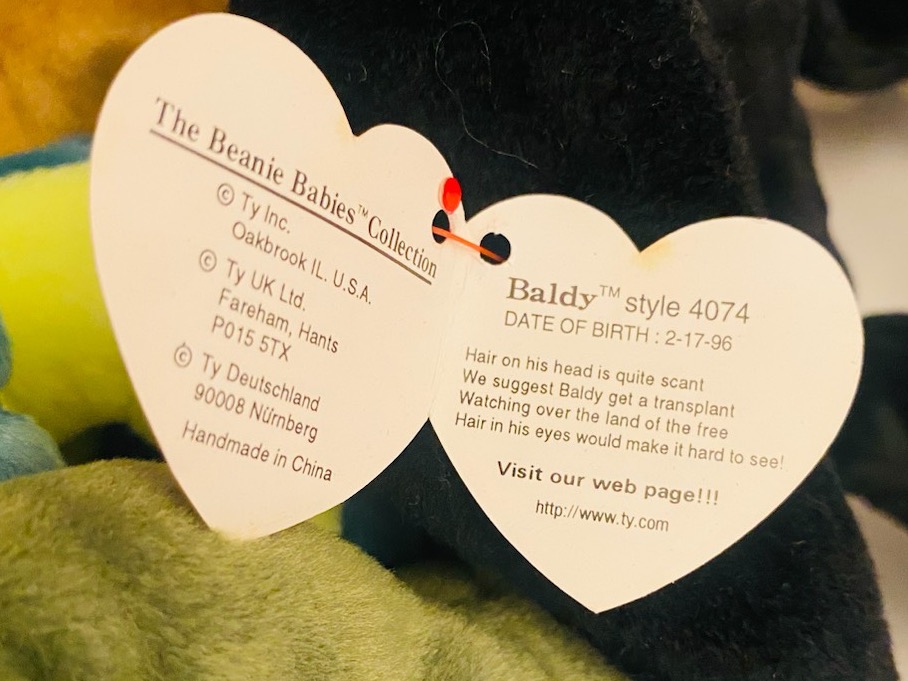 The Beanie Babies™ Collection
© Ty Inc.
Oakbrook IL. U.S.A.
© Ty UK Ltd.
Fareham, Hants
P015 5TX
© Ty Deutschland
90008 Nürnberg
Handmade in China
Baldy™ style 4074
DATE OF BIRTH : 2-17-96
Hair on his head is quite scant
We suggest Baldy get a transplant
Watching over the land of the free
Hair in his eyes would make it hard to see!
Visit our web page!!!
http://www.ty.com